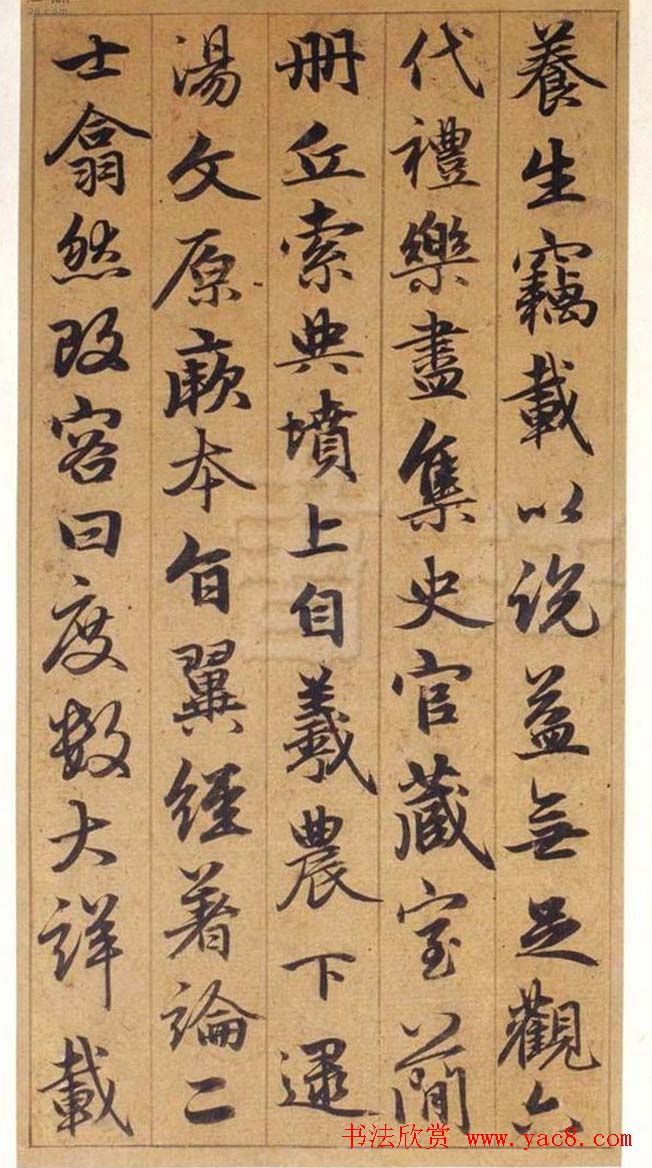 養生竊載以說益無足觀六
代禮樂盡集史官藏室簡
册丘索典墳上自羲農下逮
湯文原厥本旨翼經著論二
士翕然改容曰度數大詳載
书法欣赏 www.yac8.com